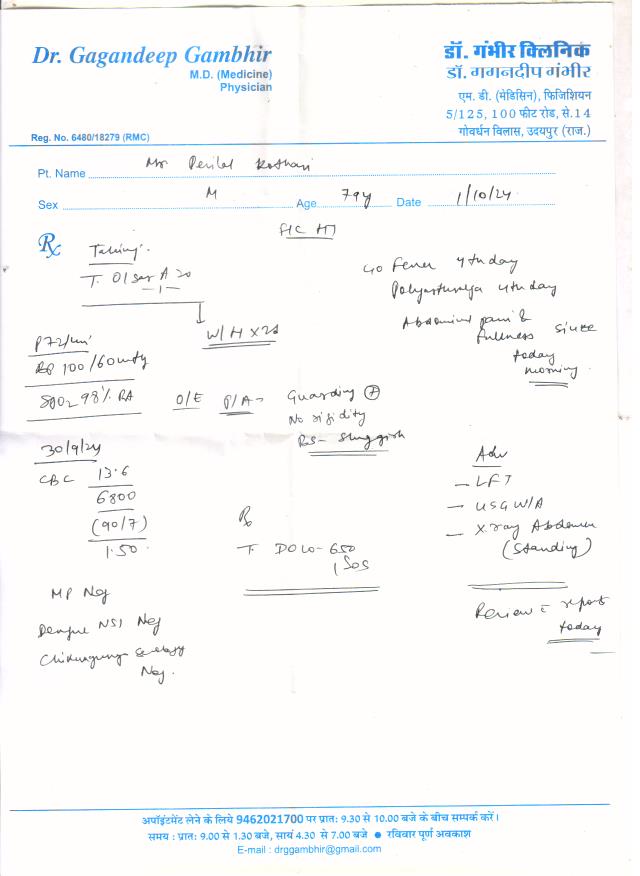 Dr. Gagandeep Gambhir
M.D. (Medicine)
Physician
Reg. No. 6480/18279 (RMC)
डॉ. गंभीर क्लिनिक
डॉ. गगनदीप गंभीर
एम. डी. (मेडिसिन), फिजिशियन
5/125, 100 फीट रोड, से.14
गोवर्धन विलास, उदयपुर (राज.)
Pt. Name Mr Kothari
Sex M Age 79y Date 1/10/24
Rx
Taking
T. Olsar A 20
-1-
W/H x 2d
c/o Fever 4th day
Polyarthralgia 4th day
Abdominal pain &
fullness since
today
morning
P 72/min
BP 100/60 mmHg
SpO2 98% RA
O/E P/A- Guarding +
No rigidity
BS- Sluggish
30/9/24
CBC 13.6
6800
(90/7)
1.50
MP Neg
Dengue NS1 Neg
Chikungunya Serology
Neg.
Rx
T. DOLO-650
1 SOS
Adv
- LFT
- USG W/A
- X.ray Abdomen
(Standing)
Review c report
today
अपॉइंटमेंट लेने के लिये 9462021700 पर प्रातः 9.30 से 10.00 बजे के बीच सम्पर्क करें।
समय : प्रातः 9.00 से 1.30 बजे, सायं 4.30 से 7.00 बजे ● रविवार पूर्ण अवकाश
E-mail : drggambhir@gmail.com